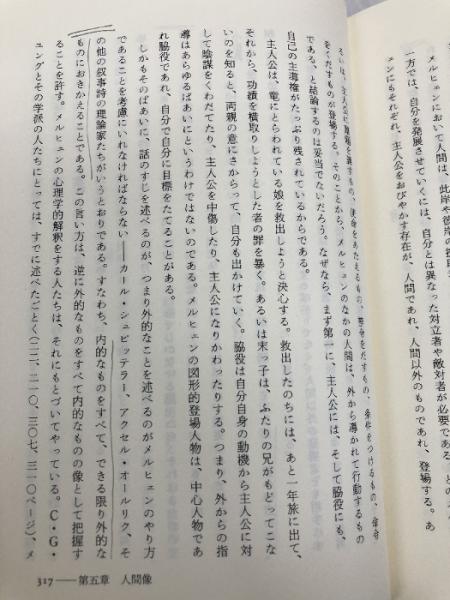 メルヒェンにおいて人間は、此岸や彼岸の援助
一方では、自分を発展させていくには、自分とは異なった対立者や敵対者が必要である。
ェンにもそれぞれ、主人公をおびやかす存在が、人間であれ、人間以外のものであれ、登場する。あ
るいは、主人公に課題を課すもの、使命をあたえるもの、禁令をだすもの、条件をつけるもの、
をくだすものが登場する。そのことから、メルヒェンのなかの人間は、外から導かれて行動するもの
である、と結論するのは妥当でないだろう。なぜなら、まず第一に、主人公には、そして脇役にも、
自己の主導権がたっぷり残されているからである。
主人公は、竜にとらわれている娘を救出しようと決心する。救出したのちには、あと一年旅に出て、
それから、功績を横取りしようとした者の罪を暴く。あるいは末っ子は、ふたりの兄がもどってこな
いのを知ると、両親の意にさからって、自分も出かけていく。脇役は自分自身の動機から主人公に対
して陰謀をくわだてたり、主人公を中傷したり、主人公になりかわったりする。つまり、外からの指
導はあらゆるばあいにというわけではないのである。メルヒェンの図形的登場人物は、中心人物であ
れ脇役であれ、自分で自分に目標をたてることがある。
しかもそのばあいに、話のすじを述べるのが、つまり外的なことを述べるのがメルヒェンのやり方
であることを考慮にいれなければならない――カール・シュピッテラー、アクセル・オールリク、そ
の他の叙事詩の理論家たちがいうとおりである。すなわち、内的なものをすべて、できる限り外的な
ものにおきかえることである。この言い方は、逆に外的なものをすべて内的なものの像として把握す
ることを許す。メルヒェンの心理学的解釈をする人たちは、それにもとづいてやっている。C・G・
ユングとその学派の人たちにとっては、すでに述べたごとく(二二、二一〇、三〇七、三一〇ページ)、メ
317――第五章 人間像